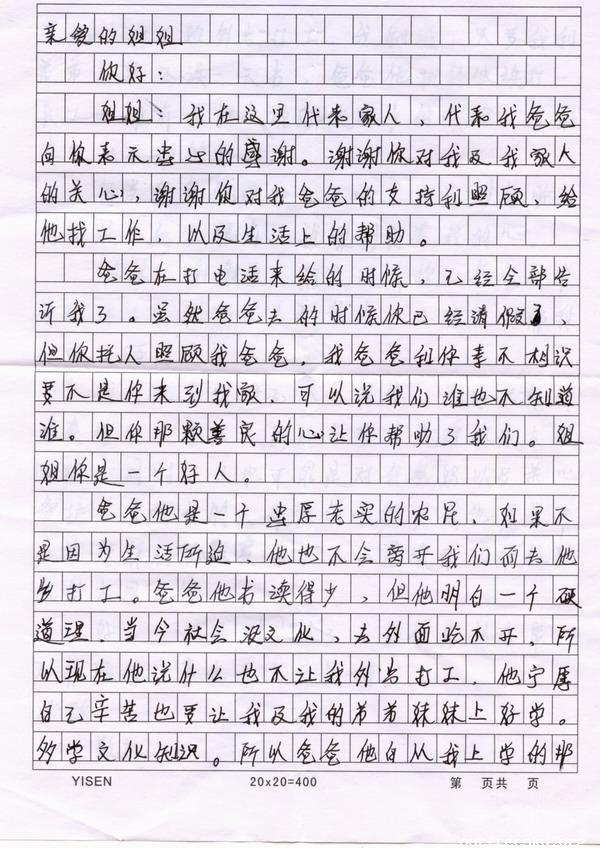 亲爱的姐姐
你好：
姐姐：我在这里代表家人，代表我爸爸
向你表示忠心的感谢。谢谢你对我及我家人
的关心，谢谢你对我爸爸的支持和照顾、给
他找工作，以及生活上的帮助。
爸爸在打电话来给的时候，已经全部告
诉我了。虽然爸爸去的时候你已经请假了，
但你托人照顾我爸爸，我爸爸和你素不相识
要不是你来到我家，可以说我们谁也不知道
谁。但你那颗善良的心让你帮助了我们。姐
姐你是一个好人。
爸爸他是一个忠厚老实的农民，如果不
是因为生活所迫，他也不会离开我们而去他
乡打工。爸爸他书读得少，但他明白一个硬
道理，当今社会没文化，去外面吃不开，所
以现在他说什么也不让我外出打工，他宁愿
自己辛苦也要让我及我的弟弟妹妹上好学。
多学文化知识。所以爸爸他自从我上学的那
YISEN 20x20=400 第 页共 页